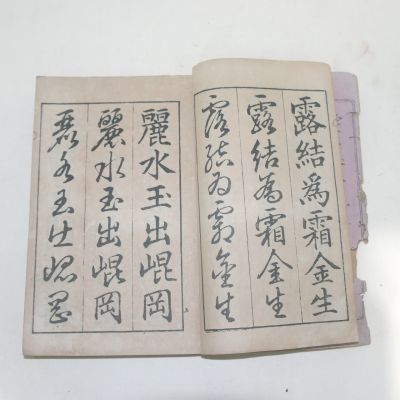 露結為霜金生
露結為霜金生
露結為霜金生
麗水玉出崐岡
麗水玉出崐岡
麗水玉出崐岡